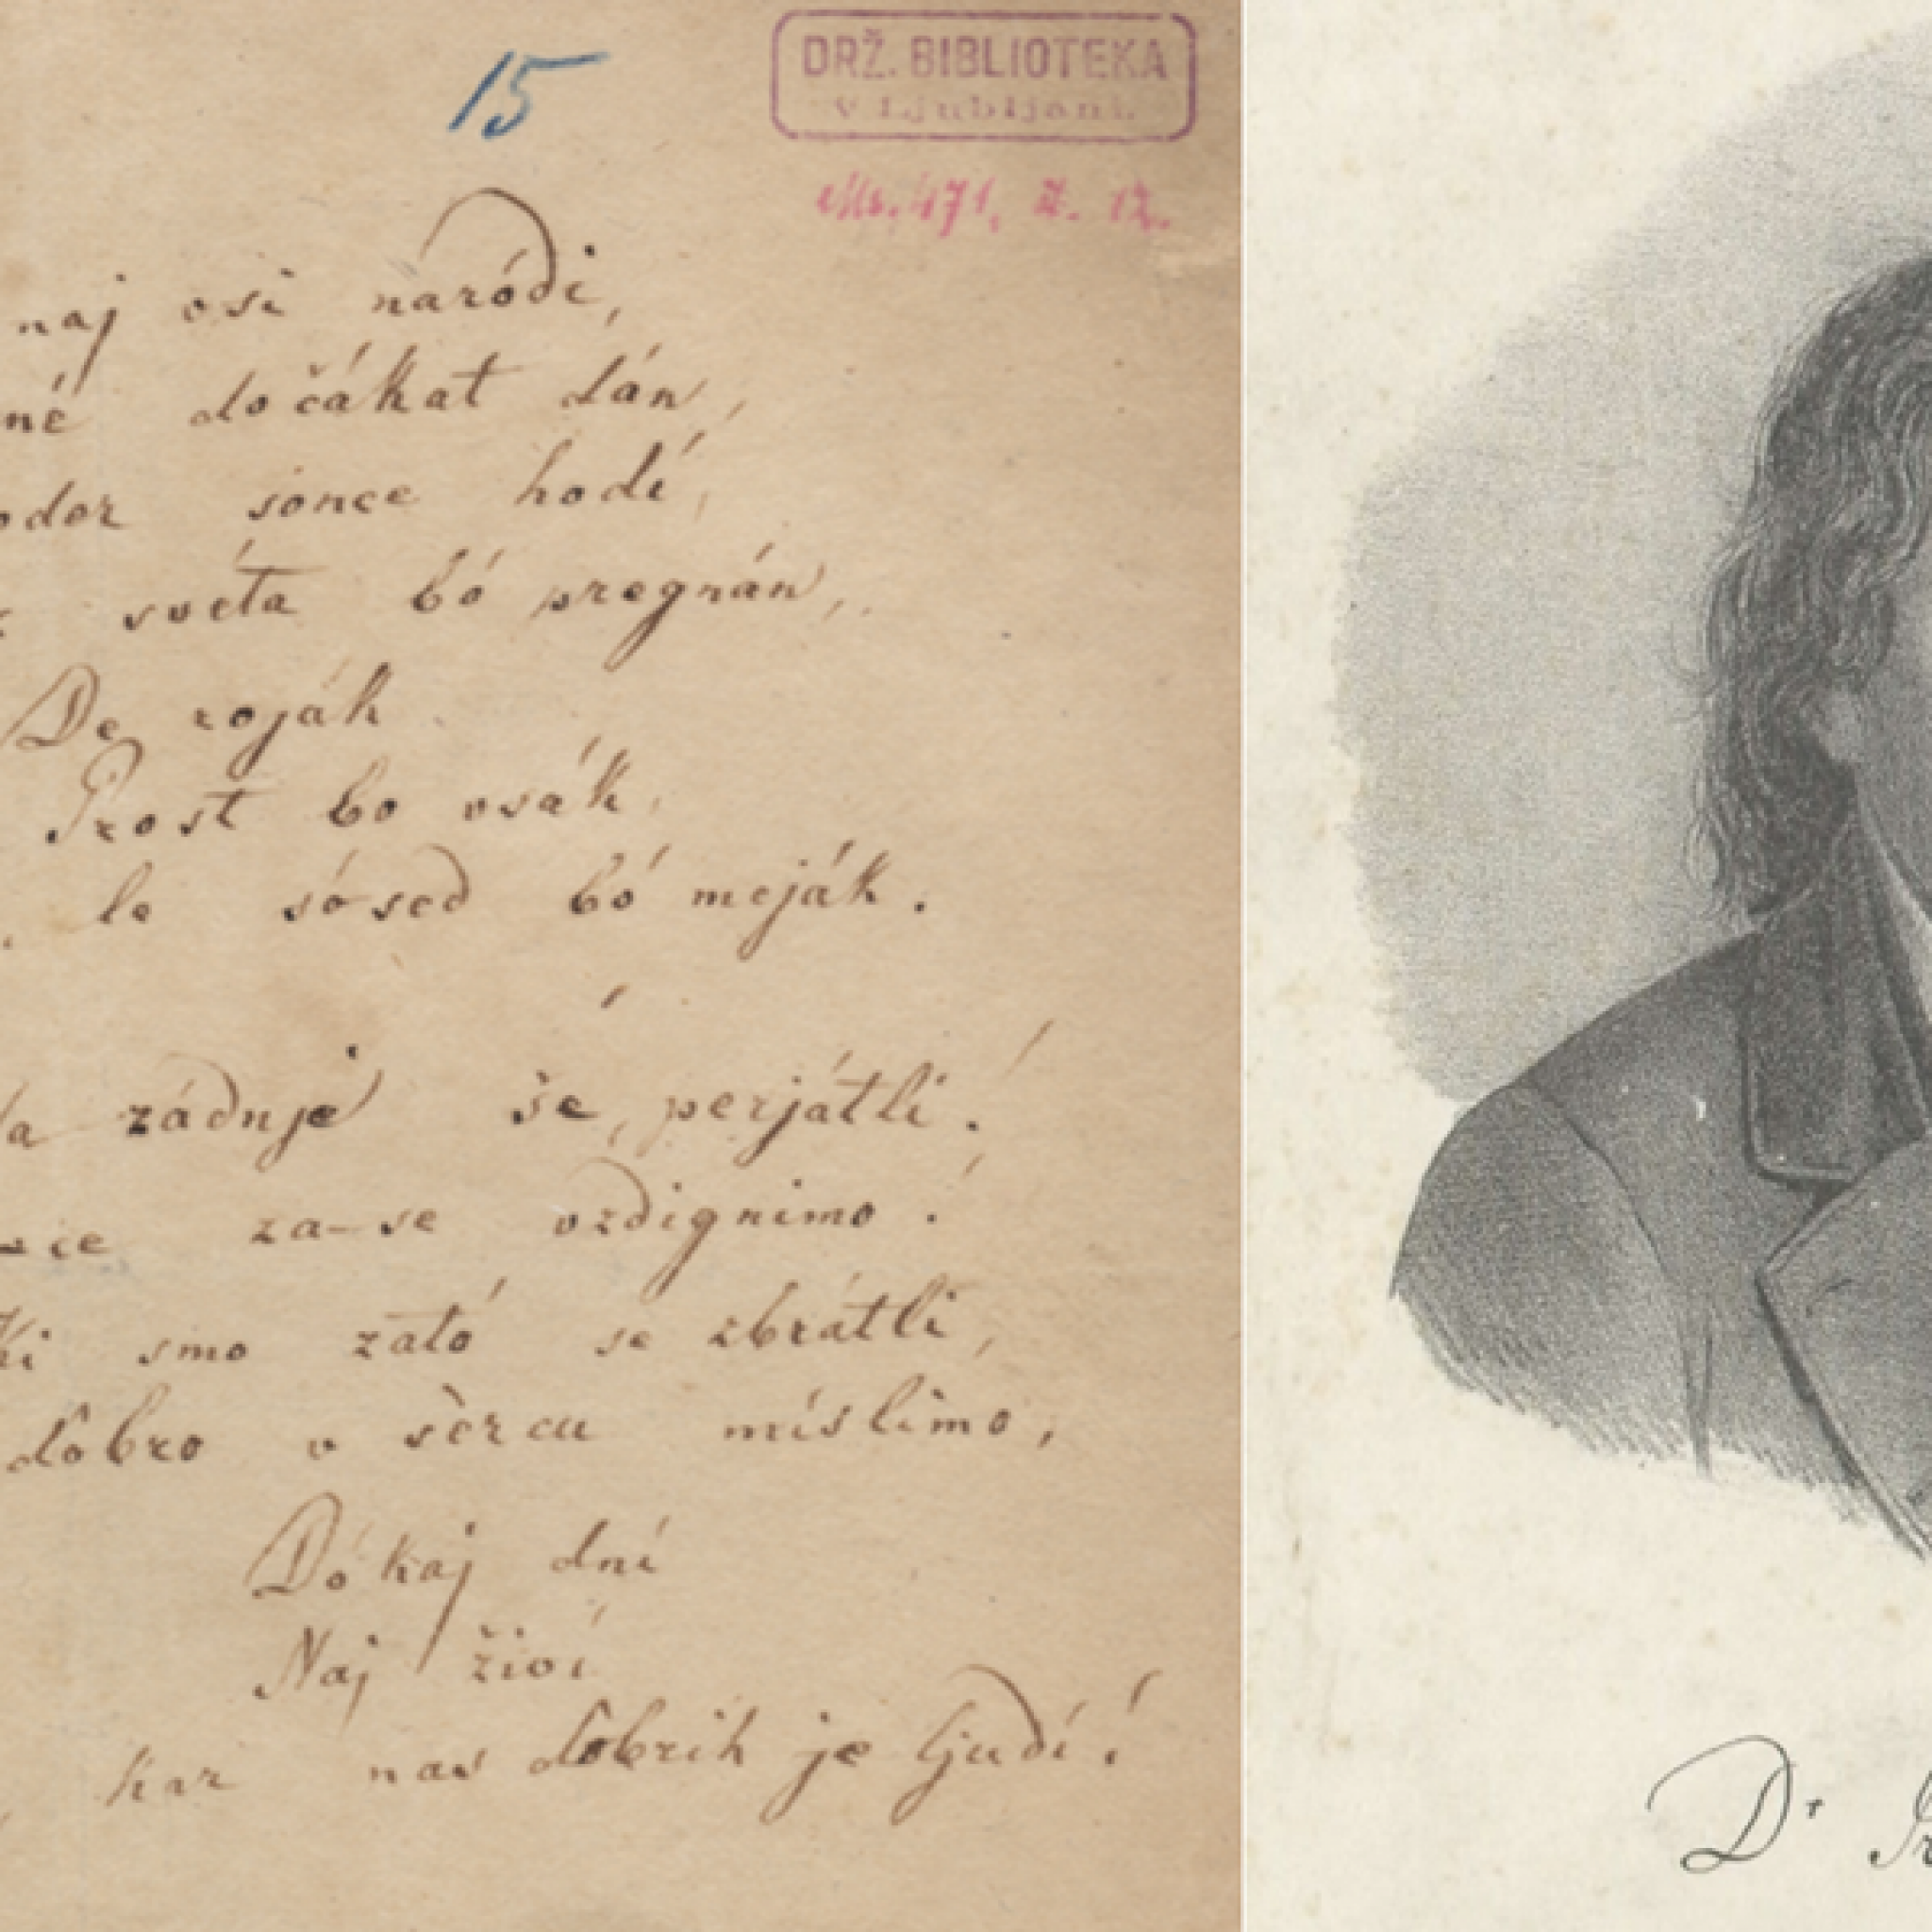 15
DRŽ. BIBLIOTEKA
v Ljubljani.
Ms. 471, 12.
naj vsi naródi,
dočákat dán,
sonce hodi,
svéta bó pregnán,
De roják
Prost bo vsák,
le sósed bó meják.
zádnje še, perjátli!
za-se vzdignimo!
Ki smo zató se zbrátli,
dobro v sèrcu míslimo,
Dókaj dní
Naj živí
kar nas dobrih je ljudí!
Dr